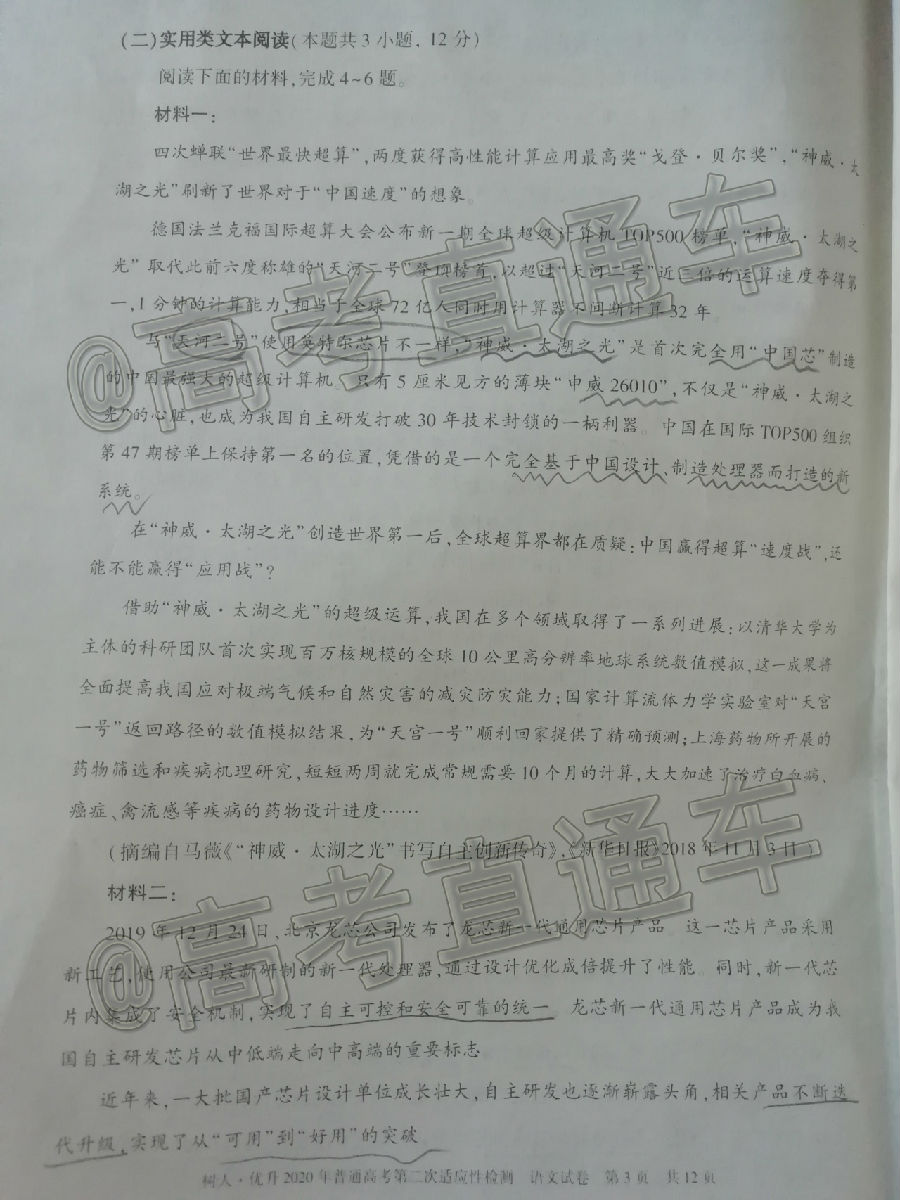 (二)实用类文本阅读(本题共3小题，12分)
阅读下面的材料，完成4~6题。
材料一：
四次蝉联“世界最快超算”，两度获得高性能计算应用最高奖“戈登·贝尔奖”，“神威·太
湖之光”刷新了世界对于“中国速度”的想象。
德国法兰克福国际超算大会公布新一期全球超级计算机TOP500榜单，“神威·太湖之
光”取代此前六度称雄的“天河二号”登顶榜首，以超过“天河二号”近三倍的运算速度夺得第
一，1分钟的计算能力，相当于全球72亿人同时用计算器不间断计算32年。
与“天河二号”使用英特尔芯片不一样，“神威·太湖之光”是首次完全用“中国芯”制造
的中国最强大的超级计算机。只有5厘米见方的薄块“申威26010”，不仅是“神威·太湖之
光”的心脏，也成为我国自主研发打破30年技术封锁的一柄利器。中国在国际TOP500组织
第47期榜单上保持第一名的位置，凭借的是一个完全基于中国设计、制造处理器而打造的新
系统。
在“神威·太湖之光”创造世界第一后，全球超算界都在质疑：中国赢得超算“速度战”，还
能不能赢得“应用战”？
借助“神威·太湖之光”的超级运算，我国在多个领域取得了一系列进展：以清华大学为
主体的科研团队首次实现百万核规模的全球10公里高分辨率地球系统数值模拟，这一成果将
全面提高我国应对极端气候和自然灾害的减灾防灾能力；国家计算流体力学实验室对“天宫
一号”返回路径的数值模拟结果，为“天宫一号”顺利回家提供了精确预测；上海药物所开展的
药物筛选和疾病机理研究，短短两周就完成常规需要10个月的计算，大大加速了治疗白血病、
癌症、禽流感等疾病的药物设计进度……
(摘编自马薇《“神威·太湖之光”书写自主创新传奇》，《新华日报》2018年11月3日)
材料二：
2019年12月24日，北京龙芯公司发布了龙芯新一代通用芯片产品。这一芯片产品采用
新工艺，使用公司最新研制的新一代处理器，通过设计优化成倍提升了性能。同时，新一代芯
片内集成了安全机制，实现了自主可控和安全可靠的统一。龙芯新一代通用芯片产品成为我
国自主研发芯片从中低端走向中高端的重要标志。
近年来，一大批国产芯片设计单位成长壮大，自主研发也逐渐崭露头角，相关产品不断迭
代升级，实现了从“可用”到“好用”的突破。
树人·优升2020年普通高考第二次适应性检测 语文试卷 第3页 共12页
@高考直通车
@高考直通车